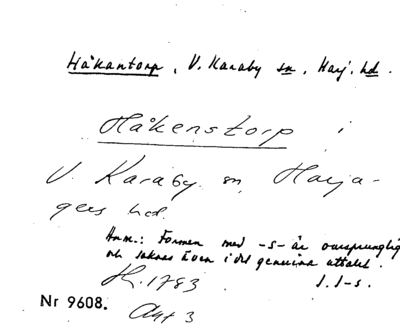 Håkantorp, V. Karaby sn, Harj. hd.
Håkenstorp i
V. Karaby sn Harja-
gers hd.
Anm.: Formen med -s- är oursprunglig
och saknas även i det genuina uttalet.
1783 J. J-s.
Nr 9608. Akt 3